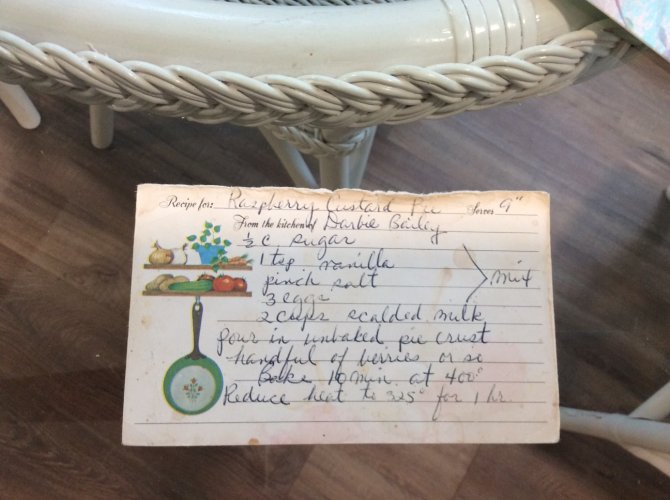 Recipe for: Raspberry Custard Pie Serves 9"
From the kitchen of Darbie Bailey
½ c sugar
1 tsp vanilla
pinch salt
mix
3 eggs
2 cups scalded milk
pour in unbaked pie crust
handful of berries or so
Bake 10 min at 400°
Reduce heat to 325° for 1 hr.